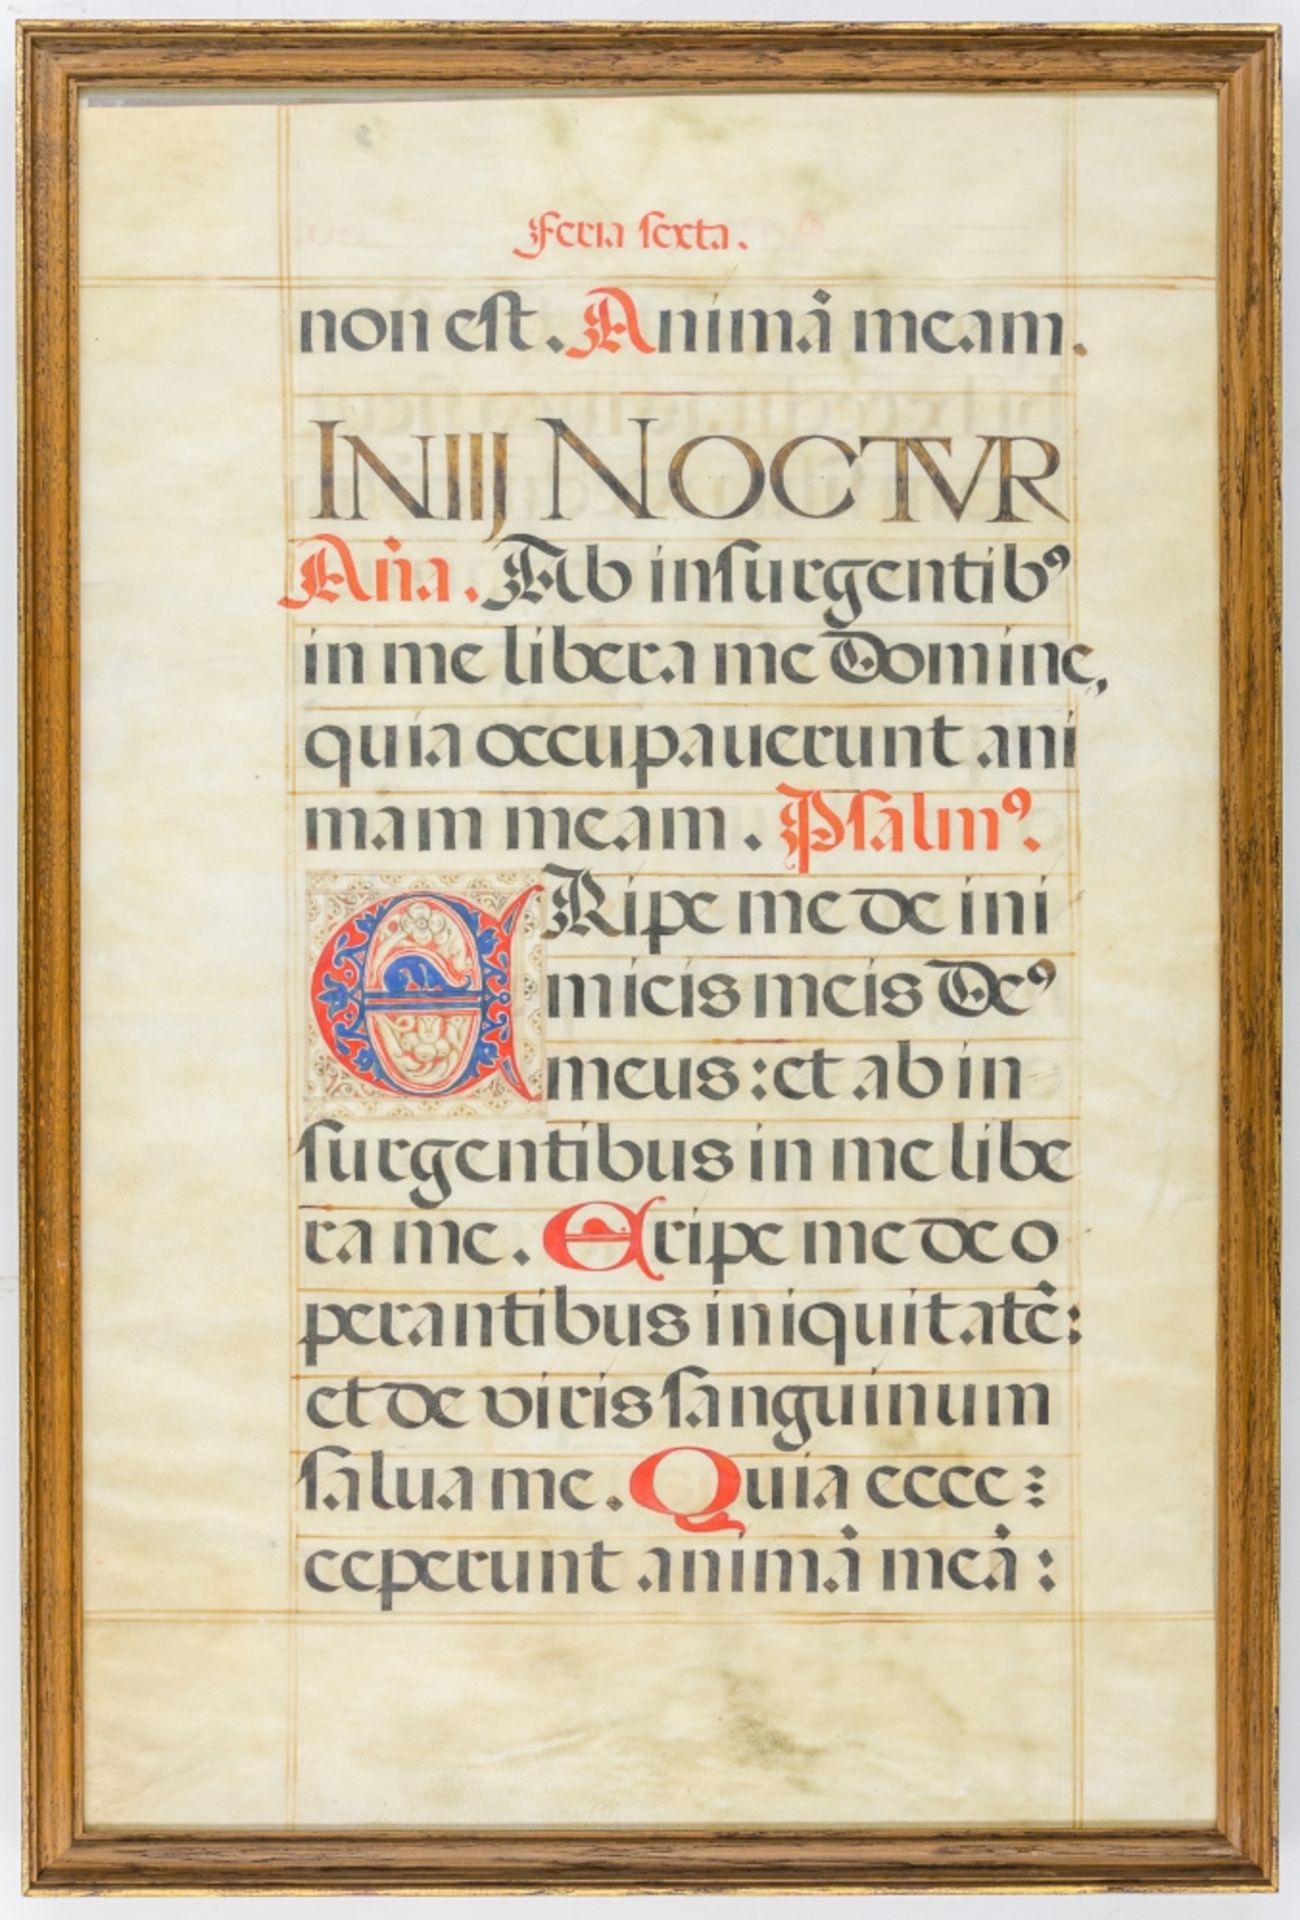 Feria sexta.
non est. Animā meam.
IN IIJ NOCTVR
Aña. Ab insurgentibꝰ
in me libera me Domine,
quia occupauerunt ani
mam meam. Psalmꝰ.
ERipe me de ini
micis meis Deꝰ
meus: et ab in
surgentibus in me libe
ra me. Eripe me de o
perantibus iniquitatē:
et de viris sanguinum
salua me. Quia ecce:
ceperunt animā meā: